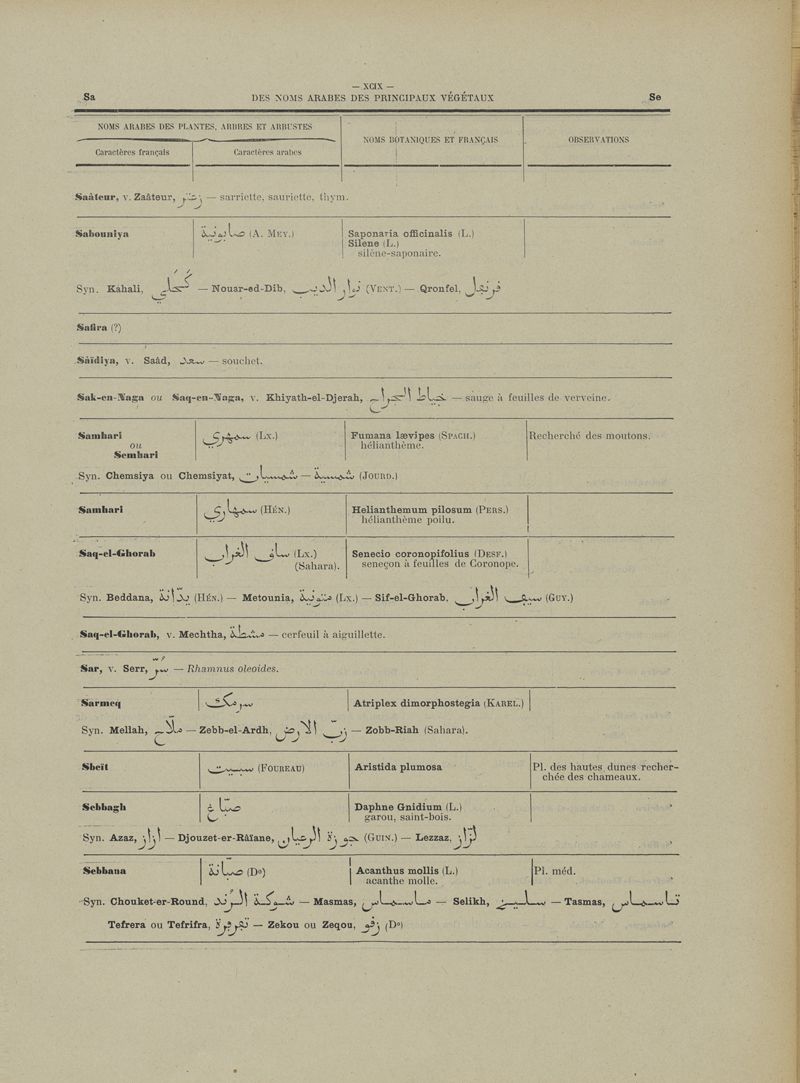 — XCIX —
Sa DES NOMS ARABES DES PRINCIPAUX VÉGÉTAUX Se
NOMS ARABES DES PLANTES, ARBRES ET ARBUSTES
NOMS BOTANIQUES ET FRANÇAIS OBSERVATIONS
Caractères français Caractères arabes
Saâteur, v. Zaâteur, زعتر — sarriette, sauriette, thym.
Sabouniya صابونية (A. MEY.) Saponaria officinalis (L.)
Silene (L.)
silène-saponaire.
Syn. Kahali, كحلي — Nouar-ed-Dib, نوار الذيب (VENT.) — Qronfel, قرنفل
Safira (?)
Sâïdiya, v. Saâd, سعد — souchet.
Sak-en-Naga ou Saq-en-Naga, v. Khiyath-el-Djerah, خياط الجراح — sauge à feuilles de verveine.
Samhari سمهري (LX.) Fumana lævipes (SPACH.) Recherché des moutons.
ou hélianthème.
Semhari
Syn. Chemsiya ou Chemsiyat, شمسيات — شمسية (JOURD.)
Samhari سمهاري (HÉN.) Helianthemum pilosum (PERS.)
hélianthème poilu.
Saq-el-Ghorab ساق الغراب (LX.) Senecio coronopifolius (DESF.)
(Sahara). seneçon à feuilles de Coronope.
Syn. Beddana, بدانة (HÉN.) — Metounia, متونية (LX.) — Sif-el-Ghorab, سيف الغراب (GUY.)
Saq-el-Ghorab, v. Mechtha, مشطة — cerfeuil à aiguillette.
Sar, v. Serr, سر — Rhamnus oleoides.
Sarmeq سرمك Atriplex dimorphostegia (KAREL.)
Syn. Mellah, ملاح — Zebb-el-Ardh, زب الارض — Zobb-Riah (Sahara).
Sbeït سبيت (FOUREAU) Aristida plumosa Pl. des hautes dunes recher-
chée des chameaux.
Sebbagh صباغ Daphne Gnidium (L.)
garou, saint-bois.
Syn. Azaz, ازاز — Djouzet-er-Râïane, جوزة الرعيان (GUIN.) — Lezzaz, لزاز
Sebbana صبانة (Dº) Acanthus mollis (L.) Pl. méd.
acanthe molle.
Syn. Chouket-er-Round, شوكة الرند — Masmas, ماسماس — Selikh, — Tasmas, تاسماس
Tefrera ou Tefrifra, — Zekou ou Zeqou, زقو (Dº)